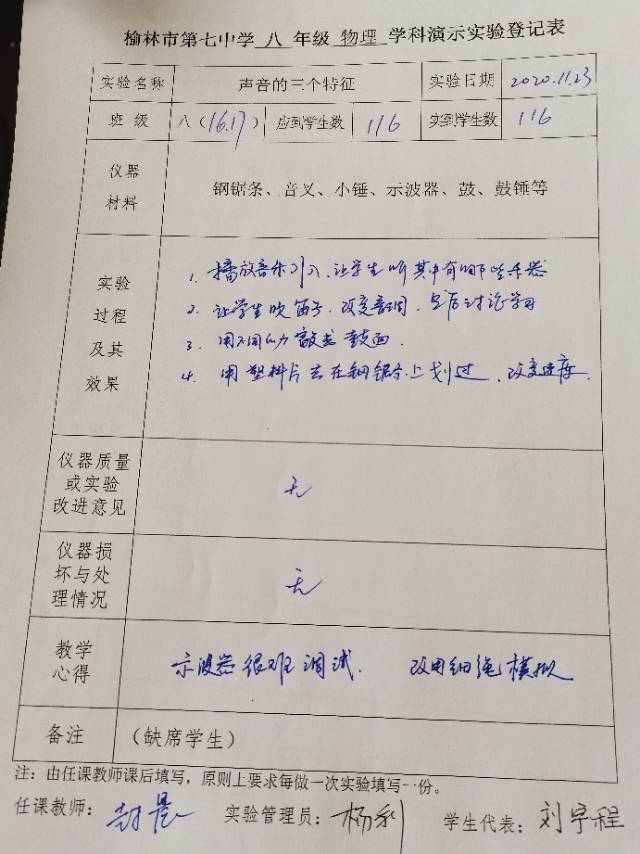 榆林市第七中学 八 年级 物理 学科演示实验登记表
实验名称 声音的三个特征 实验日期 2020.11.23
班 级 八(16.17) 应到学生数 116 实到学生数 116
仪器
材料
钢锯条、音义、小锤、示波器、鼓、鼓锤等
实验
过程
及其
效果
1. 播放音乐引入,让学生听其中有哪些乐器
2. 让学生吹笛子,改变音调,且后讨论学习
3. 用不同的力敲击鼓面.
4. 用塑料片去在钢锯条上划过,改变速度.
仪器质量
或实验
改进意见
无
仪器损
坏与处
理情况
无
教学
心得
示波器很难调试. 改用细绳模拟
备注 (缺席学生)
注:由任课教师课后填写,原则上要求每做一次实验填写一份。
任课教师: 封晨 实验管理员: 杨利 学生代表: 刘宇程